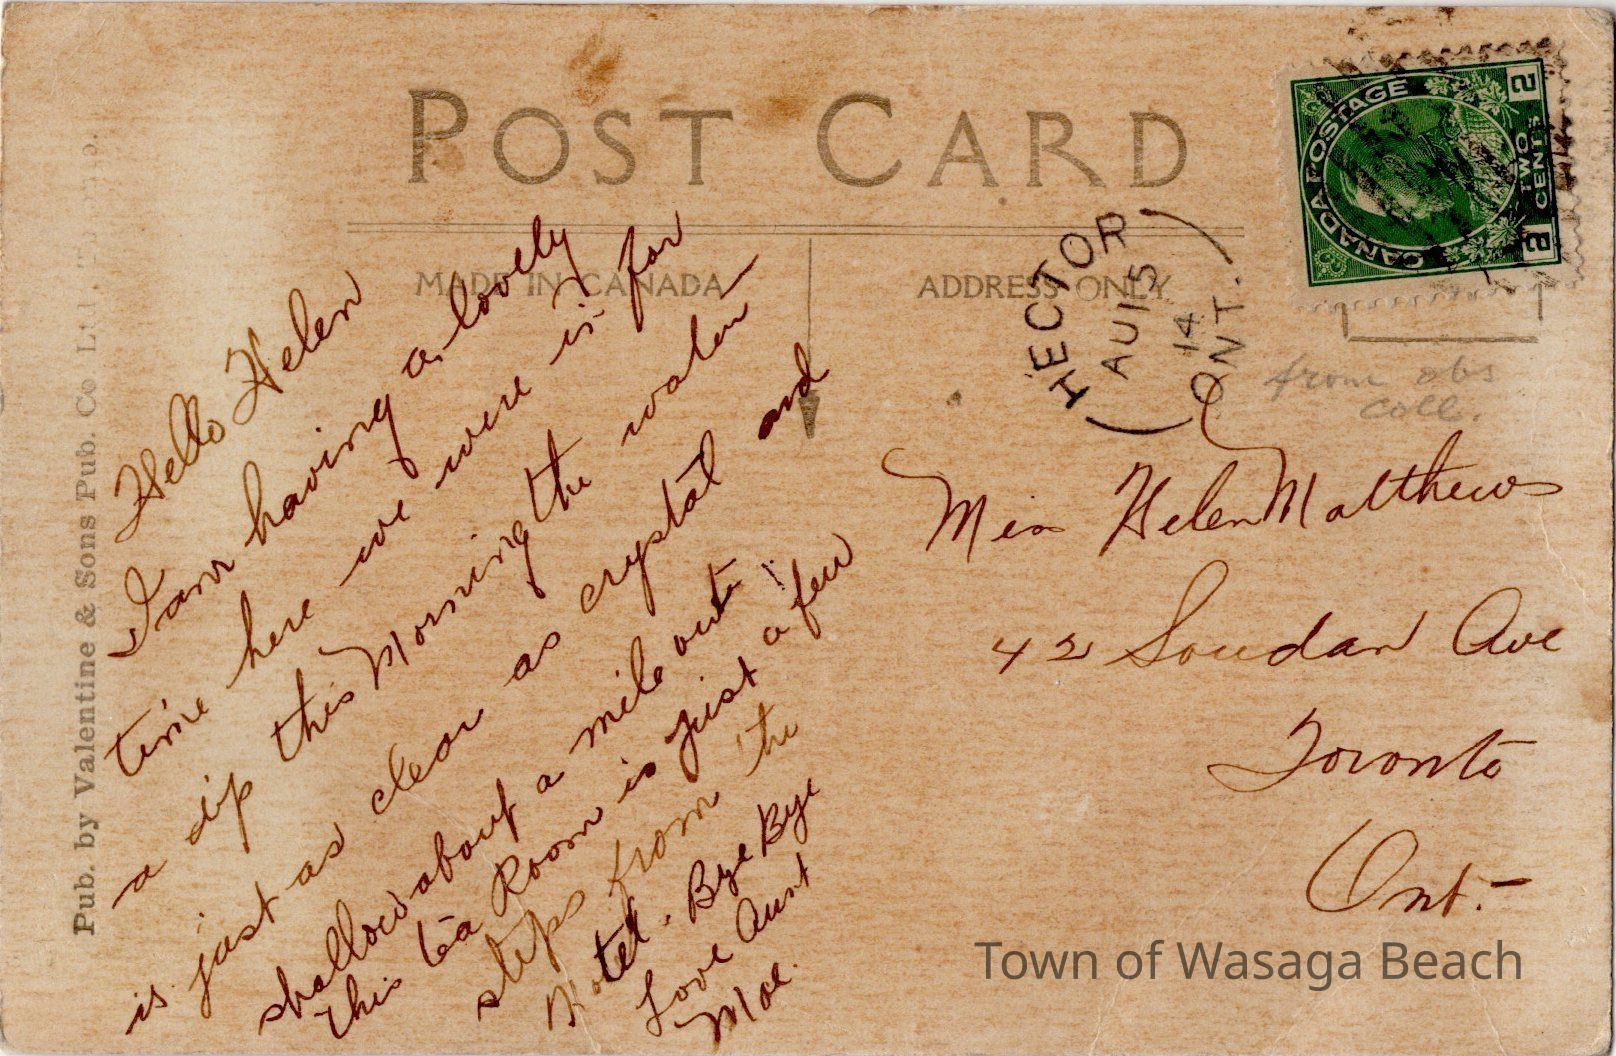 POST CARD
MADE IN CANADA
ADDRESS ONLY
CANADA POSTAGE
2 TWO CENTS 2
HECTOR
AU 15
14
ONT.
from obs
coll.
Hello Helen
I am having a lovely
time here we were in for
a dip this Morning the water
is just as clear as crystal and
shallow about a mile out
This tea Room is just a few
steps from the
Hotel. Bye Bye
Love Aunt
Mae.
Miss Helen Matthews
42 Soudan Ave
Toronto
Ont.
Pub. by Valentine & Sons Pub. Co Ltd.
Town of Wasaga Beach